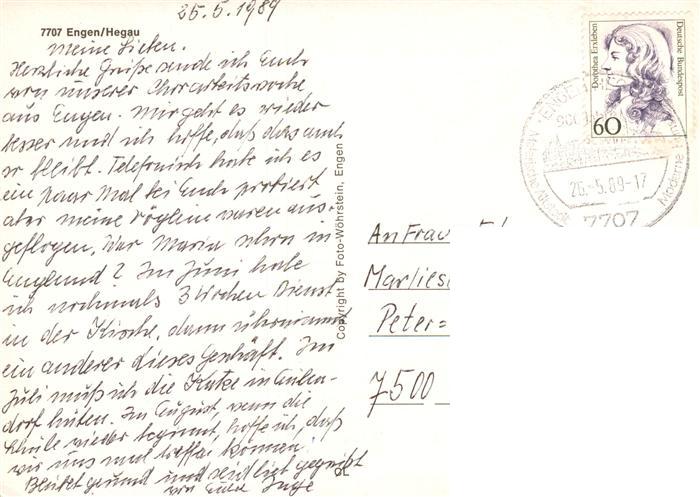 25.5.1989
7707 Engen/Hegau
Meine Lieben.
Herzliche Grüße sende ich Euch
von unserer Chorarbeitswoche
aus Engen. Mir geht es wieder
besser und ich hoffe, daß das auch
so bleibt. Telefonisch habe ich es
ein paar Mal bei Euch probiert
aber meine Vöglein waren aus-
geflogen. War Maria schon in
England? Im Juni habe
ich nochmals 3 Wochen Dienst
in der Kirche, dann übernimmt
ein anderer dieses Geschäft. Im
Juli muß ich die Katze in
dorf hüten. Im August, wenn die
Schule wieder beginnt, hoffe ich, daß
wir uns mal treffen können
Bleibet gesund und seid liebst gegrüßt
von Eurer Inge
Copyright by Foto-Wöhrstein, Engen
Dorothea Erxleben
Deutsche Bundespost
60
ENGEN, HEGAU
26.-5.89-17
7707
Moderne
An Frau
Marlies
Peter=
7500